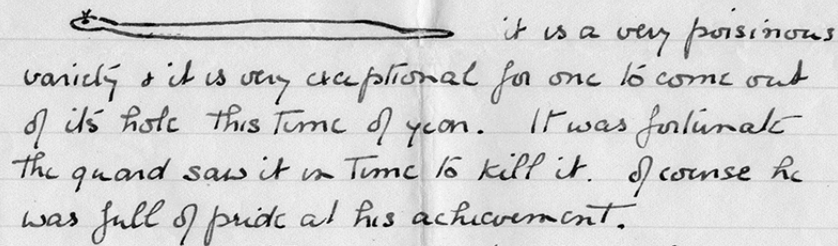 it is a very poisinous
variety & it is very exceptional for one to come out
of it's hole this time of year. It was fortunate
the guard saw it in time to kill it. Of course he
was full of pride at his achievement.